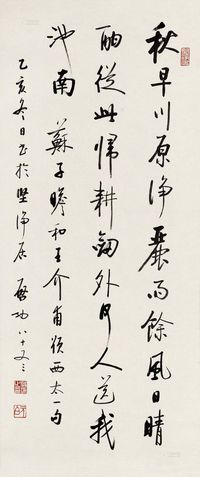 秋早川原淨麗雨餘風日晴
酣從此歸耕劒外何人送我
池南 蘇子瞻和王介甫題西太一句
乙亥冬日書於堅淨居 啓功 八十又三